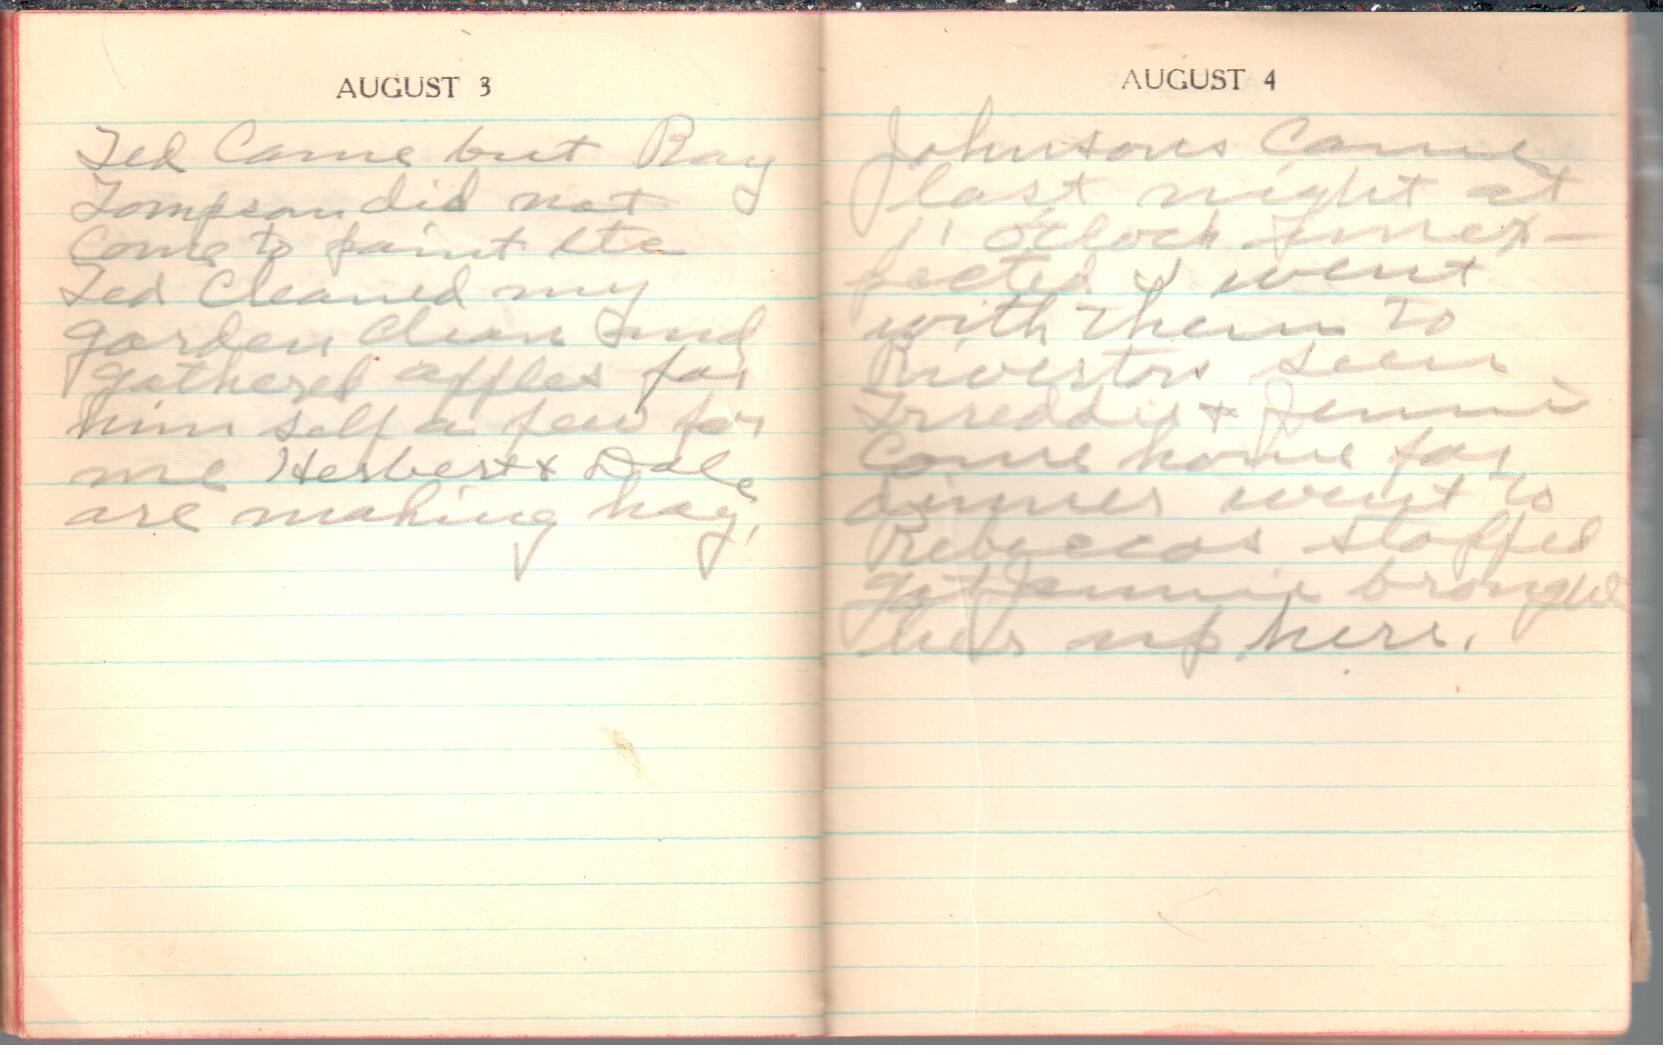 AUGUST 3
Ted Came but Ray
Tompson did not
Come to paint etc
Ted Cleaned my
garden clean and
gathered apples for
him self a few for
me Herbert & Dale
are making hay,
AUGUST 4
Johnsons Came
last night at
11 oclock unex-
pected I went
with them to
Riverton seen
Freddie & Jennie
Come home for
dinner went to
Rebeccas stopped
got Jennie brought
her up here.